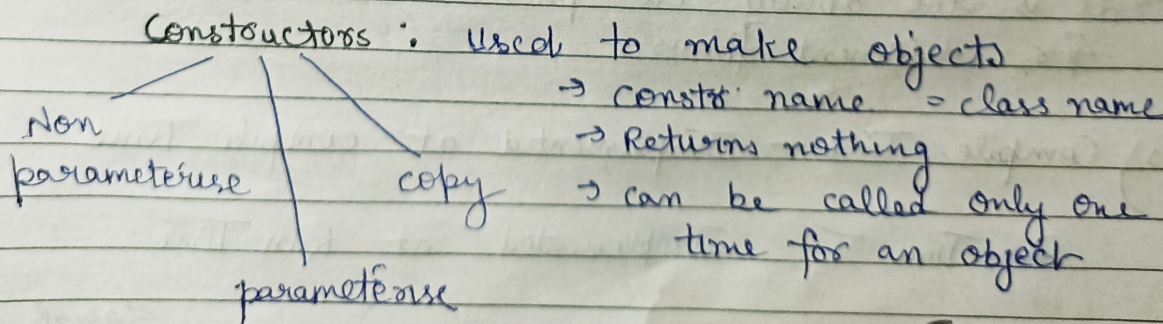 Constouctors : used to make objects
→ Constr name = class name
→ Returns nothing
→ can be called only one
time for an object
Non
parameteruse
copy
parameterise